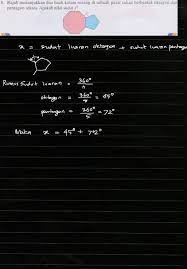 8. Rajah menunjukkan dua buah kolam renang di sebuah pusat sukan berbentuk oktagon dan
pentagon sekata. Apakah nilai sudut x?
x = sudut luaran oktagon + sudut luaran pentagon
Rumus sudut luaran = 360°/n
oktagon = 360°/8 = 45°
pentagon = 360°/5 = 72°
Maka x = 45° + 72°